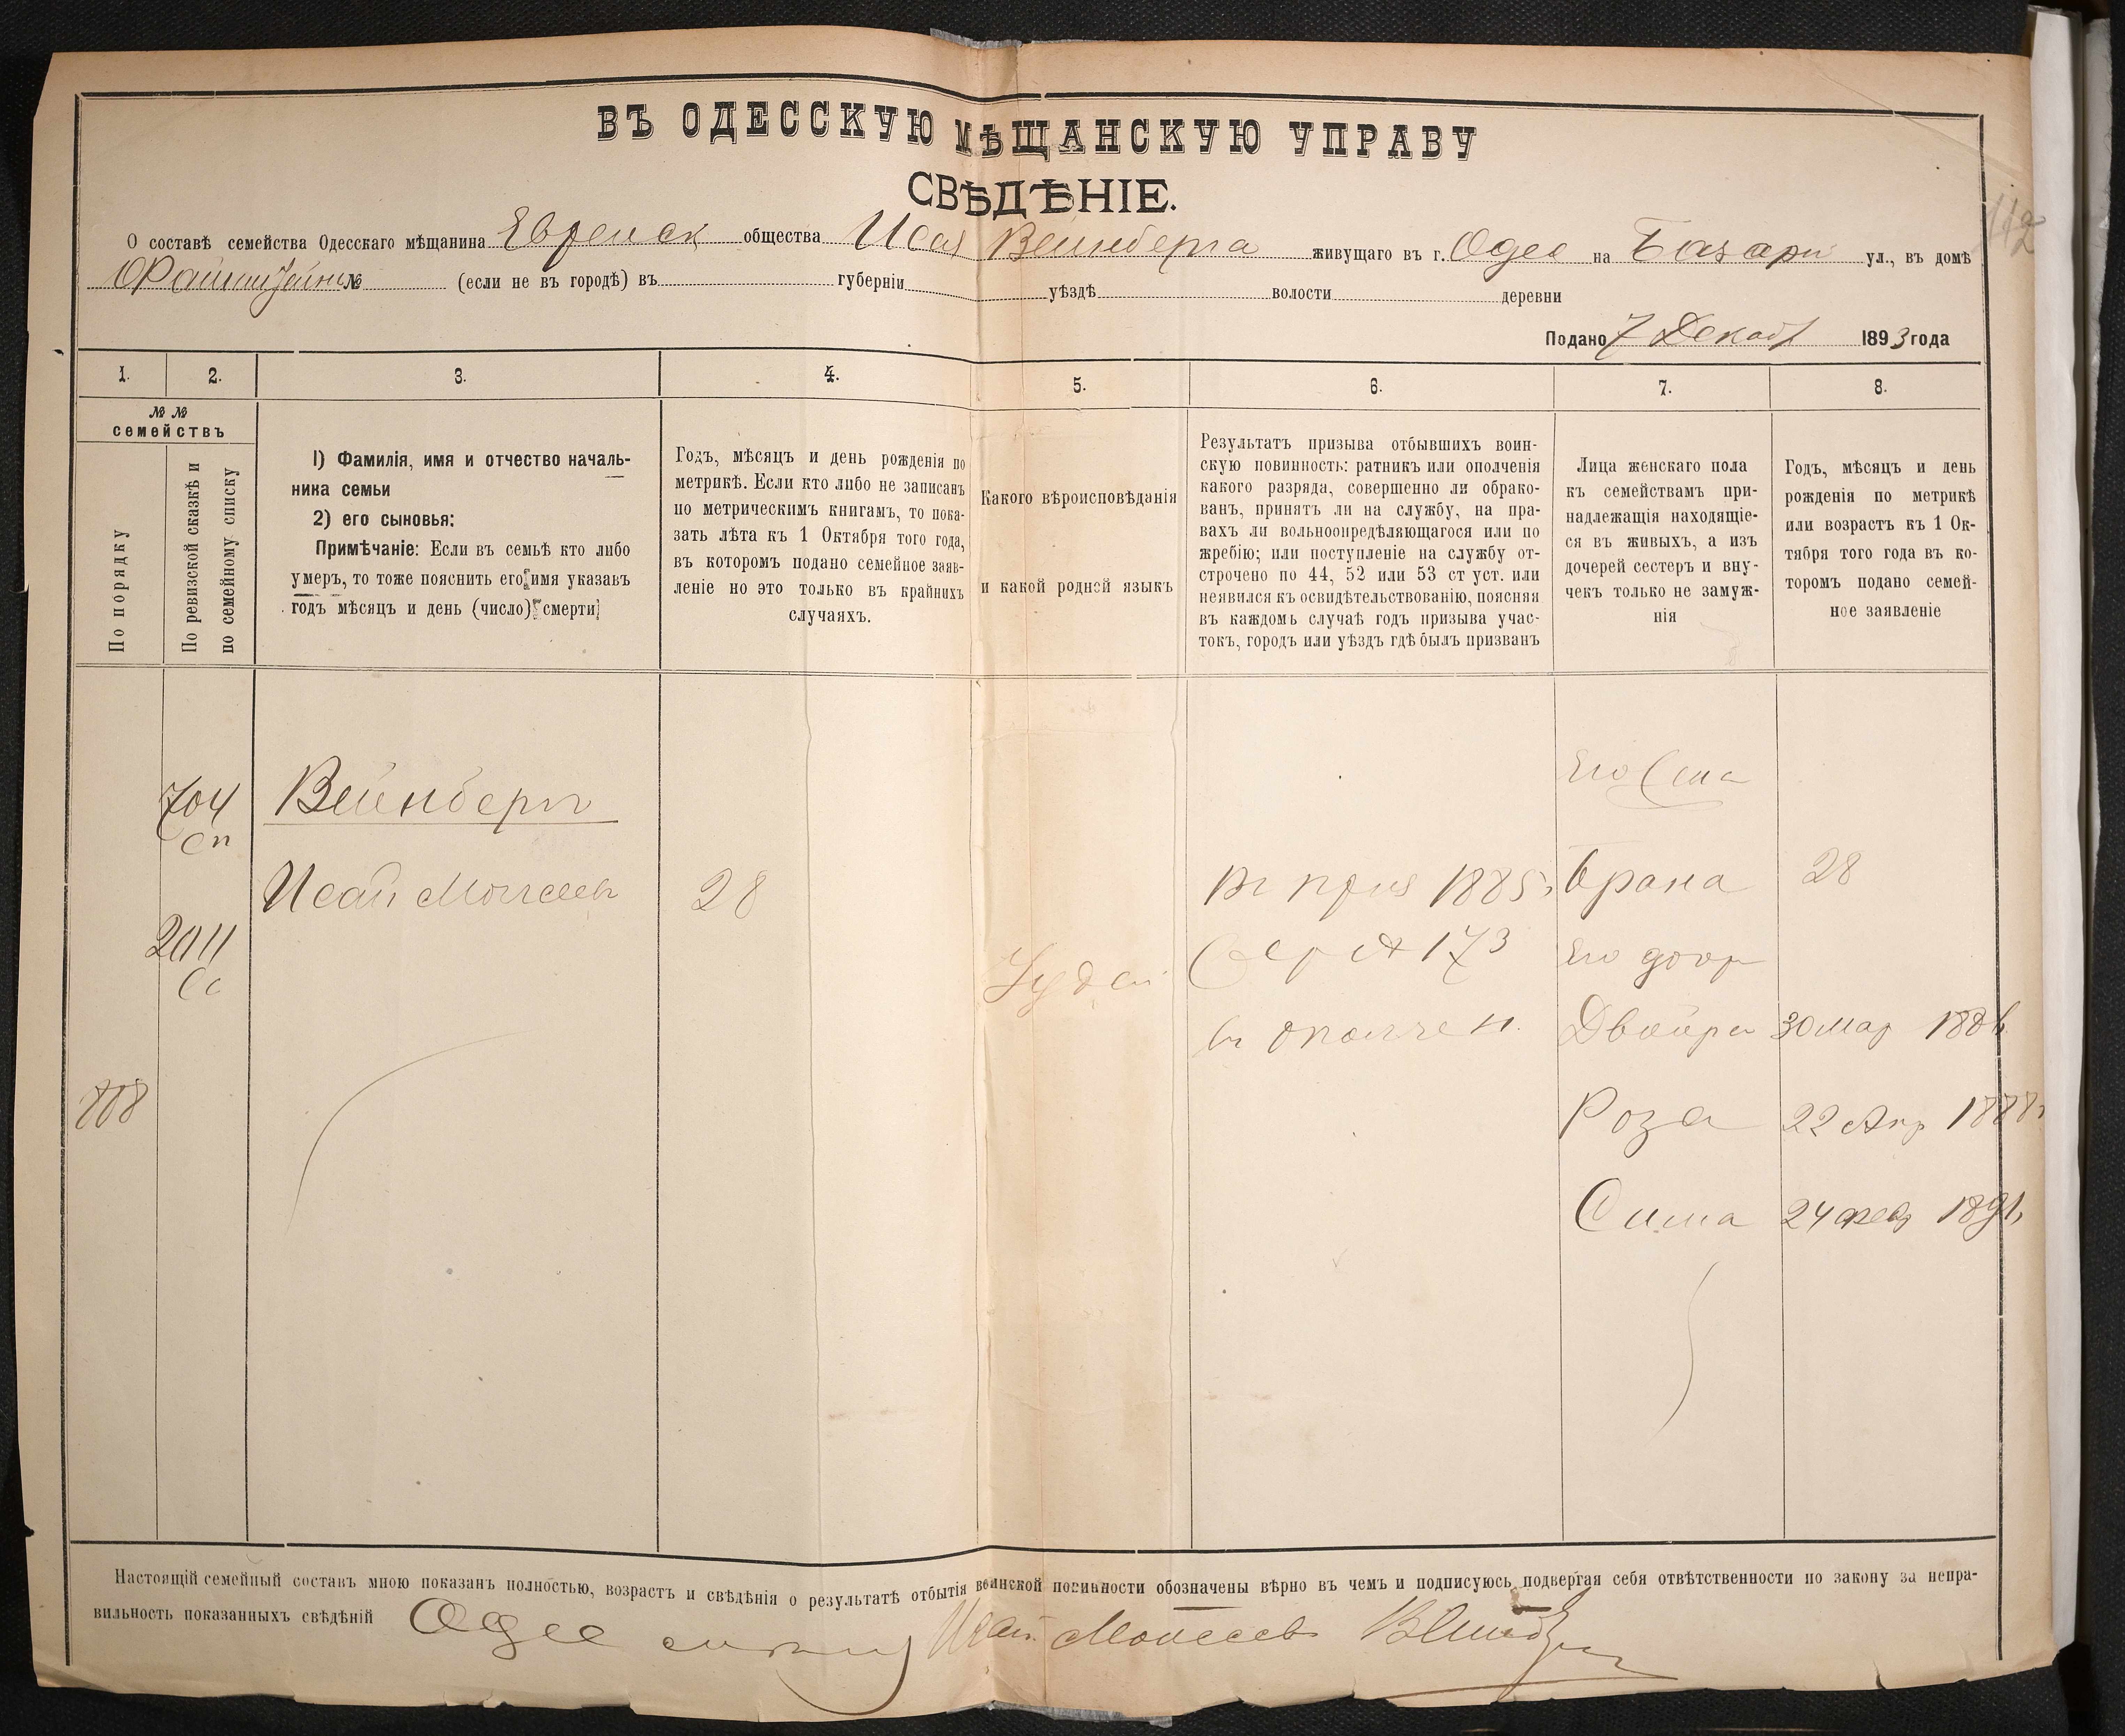 ВЪ ОДЕССКУЮ МѢЩАНСКУЮ УПРАВУ
СВѢДѢНІЕ.
О составѣ семейства Одесскаго мѣщанина Еврейск общества Исая Вейнберга живущаго въ г. Одес на Базарн ул., въ домѣ
№ (если не въ городѣ) въ губерніи уѣздѣ волости деревни
Подано 7 Декаб 1893 года
112
1. 2. 3. 4. 5. 6. 7. 8.
№ №
семействъ
По порядку
По ревизской сказкѣ и
по семейному списку
1) Фамилія, имя и отчество началь-
ника семьи
2) его сыновья:
Примѣчаніе: Если въ семьѣ кто либо
умеръ, то тоже пояснить его имя указавъ
годъ мѣсяцъ и день (число) смерти
Годъ, мѣсяцъ и день рожденія по
метрикѣ. Если кто либо не записанъ
по метрическимъ книгамъ, то пока-
зать лѣта къ 1 Октября того года,
въ которомъ подано семейное заяв-
леніе но это только въ крайнихъ
случаяхъ.
Какого вѣроисповѣданія
и какой родной языкъ
Результатъ призыва отбывшихъ воин-
скую повинность: ратникъ или ополченія
какого разряда, совершенно ли обрако-
ванъ, принятъ ли на службу, на пра-
вахъ ли вольноопредѣляющагося или по
жребію; или поступленіе на службу от-
строчено по 44, 52 или 53 ст уст. или
неявился къ освидѣтельствованію, поясняя
въ каждомъ случаѣ годъ призыва учас-
токъ, городъ или уѣздъ гдѣ былъ призванъ
Лица женскаго пола
къ семействамъ при-
надлежащія находящіе-
ся въ живыхъ, а изъ
дочерей сестеръ и вну-
чекъ только не замуж-
нія
Годъ, мѣсяцъ и день
рожденія по метрикѣ
или возрастъ къ 1 Ок-
тября того года въ ко-
торомъ подано семей-
ное заявленіе
704
сп
Вейнберг
Исай Моисеев 28
2011
Сс
808
Іудей
приз 1885
173
въ ополчен.
Его
Брана 28
Его дочр
Двойра 30 мар 1886
Роза 22 Апр 1888
Сима 24 фев 1891
Настоящій семейный составъ мною показанъ полностью, возрастъ и свѣдѣнія о результатѣ отбытія воинской повинности обозначены вѣрно въ чемъ и подписуюсь подвергая себя отвѣтственности по закону за непра-
вильность показанныхъ свѣдѣній Одес Исай Моисеев Вейнберг